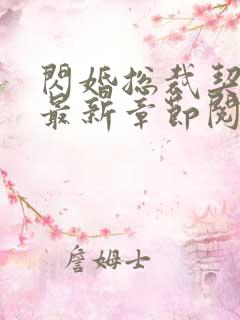 閃婚总裁契
最新章節閱
詹姆士